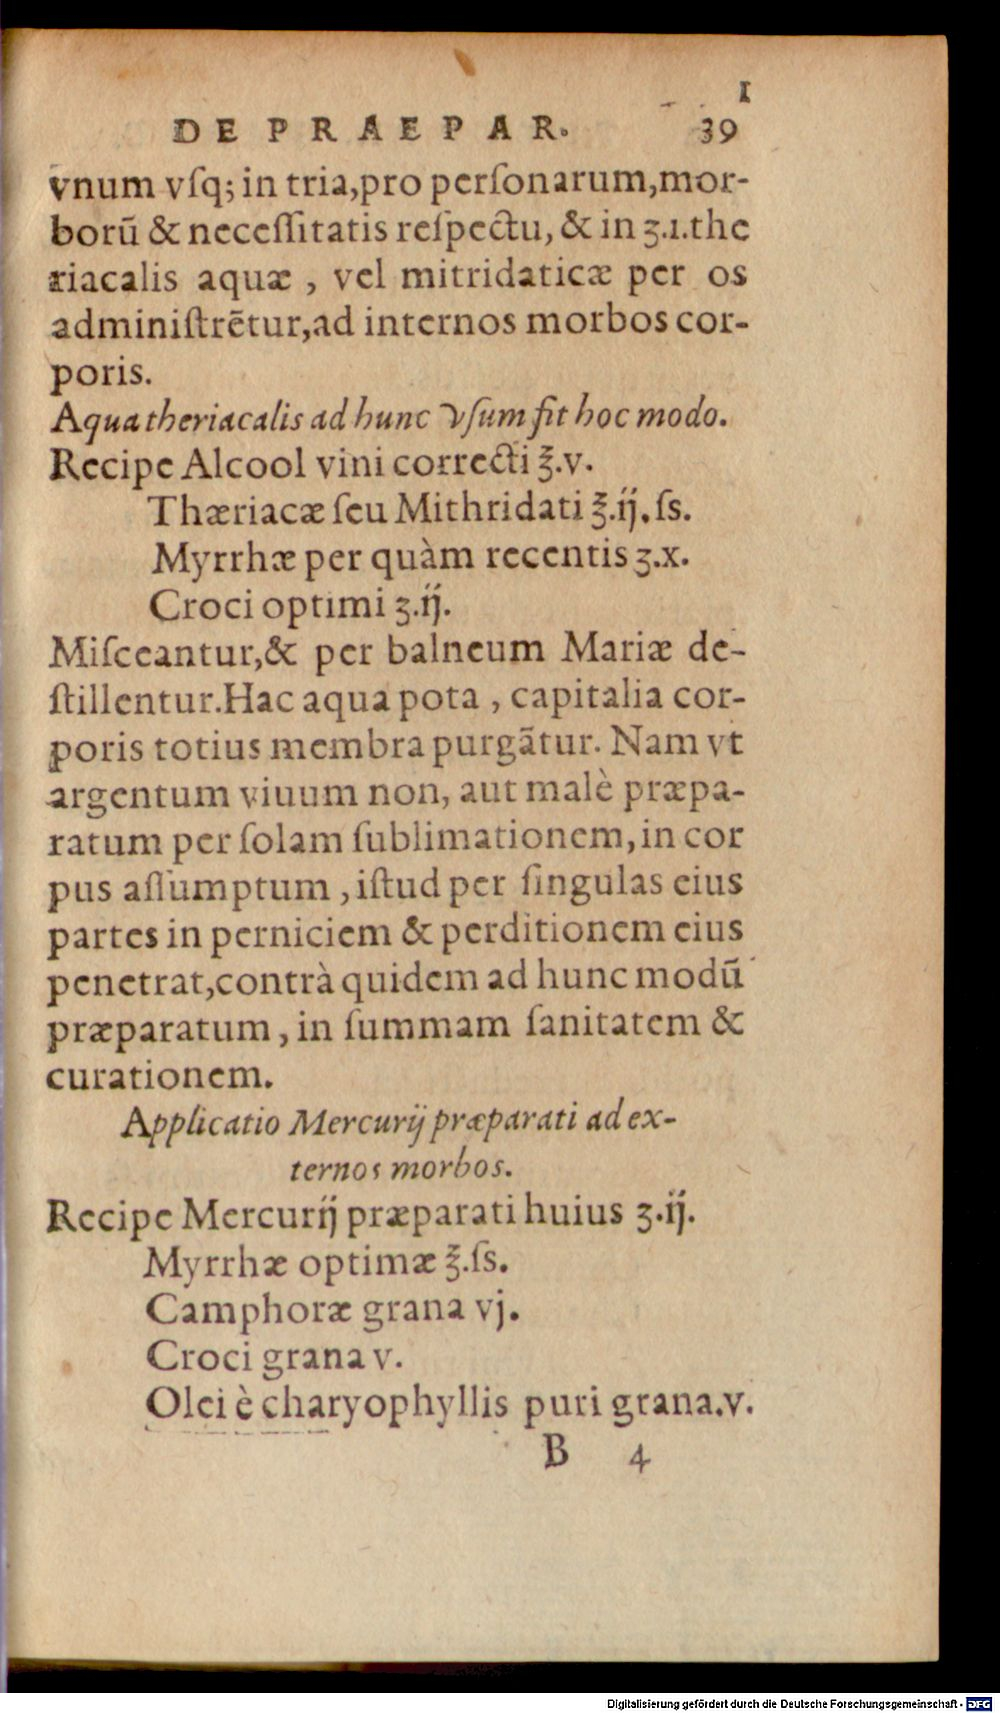 I
DE PRAEPAR. 39
vnum vſq; in tria,pro perſonarum,mor-
borũ & neceſſitatis reſpectu, & in ʒ.1.the
riacalis aquæ , vel mitridaticæ per os
adminiſtrētur,ad internos morbos cor-
poris.
Aqua theriacalis ad hunc vſum fit hoc modo.
Recipe Alcool vini correcti ℥.v.
Thæriacæ ſeu Mithridati ℥.ij.ſs.
Myrrhæ per quàm recentis ʒ.x.
Croci optimi ʒ.ij.
Miſceantur,& per balneum Mariæ de-
ſtillentur.Hac aqua pota , capitalia cor-
poris totius membra purgãtur. Nam vt
argentum viuum non, aut malè præpa-
ratum per ſolam ſublimationem, in cor
pus aſſumptum , iſtud per ſingulas eius
partes in perniciem & perditionem eius
penetrat,contrà quidem ad hunc modũ
præparatum , in ſummam ſanitatem &
curationem.
Applicatio Mercurij præparati ad ex-
ternos morbos.
Recipe Mercurij præparati huius ʒ.ij.
Myrrhæ optimæ ℥.ſs.
Camphoræ grana vj.
Croci grana v.
Olei è charyophyllis puri grana.v.
B 4
Digitalisierung gefördert durch die Deutsche Forschungsgemeinschaft - DFG